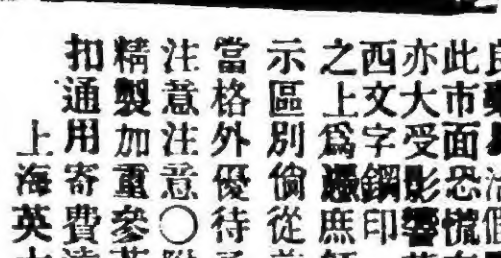 此市面恐慌
亦大受影響
西文字鋼印
之上爲憑庶
示區別倘從
當格外優待
注意注意〇附
精製加重參
扣通用寄費
上海英